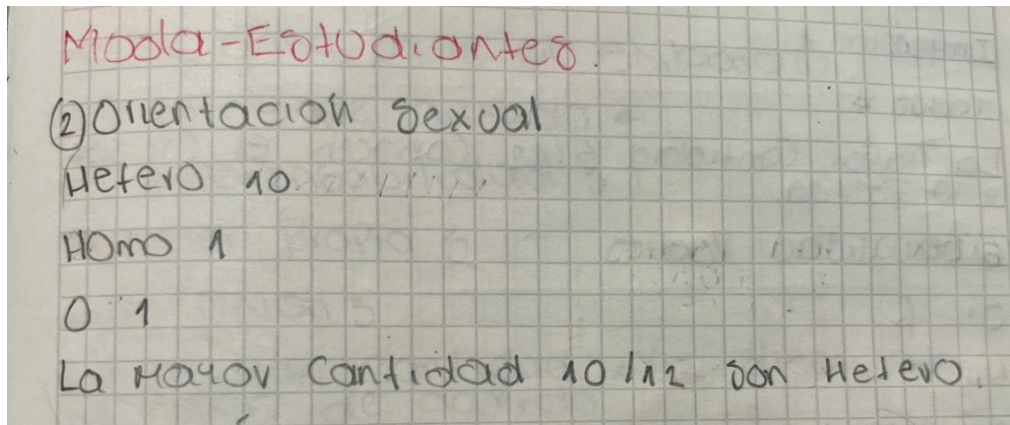 Moda-Estudiantes.
② Orientación Sexual
Hetero 10
Homo 1
O 1
La Mayor Cantidad 10/12 son Hetero.